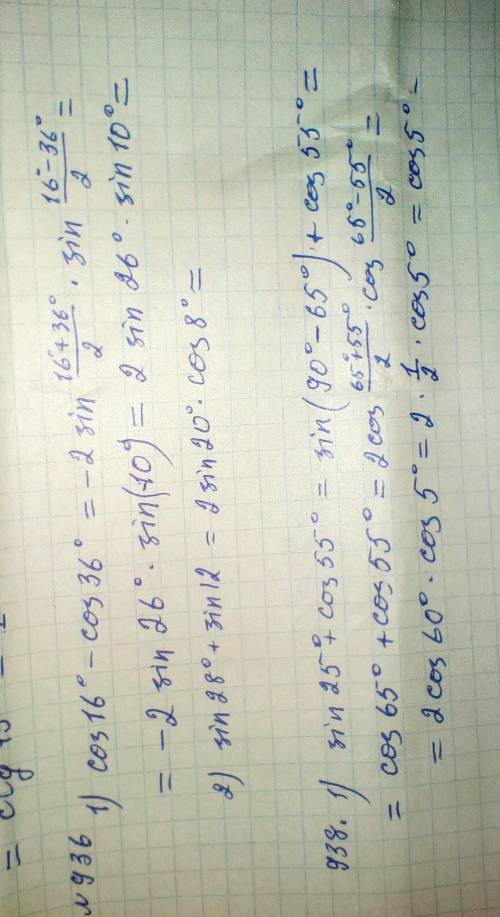 №936 1) cos16° − cos36° = −2 sin (16°+36°)/2 · sin (16°−36°)/2 =
= −2 sin 26° · sin(−10°) = 2 sin 26° · sin 10° =
2) sin28° + sin12 = 2 sin20° · cos8° =
938. 1) sin25° + cos55° = sin(90° − 65°) + cos55° =
= cos65° + cos55° = 2cos (65°+55°)/2 · cos (65°−55°)/2 =
= 2cos60° · cos5° = 2 · 1/2 · cos5° = cos5° =